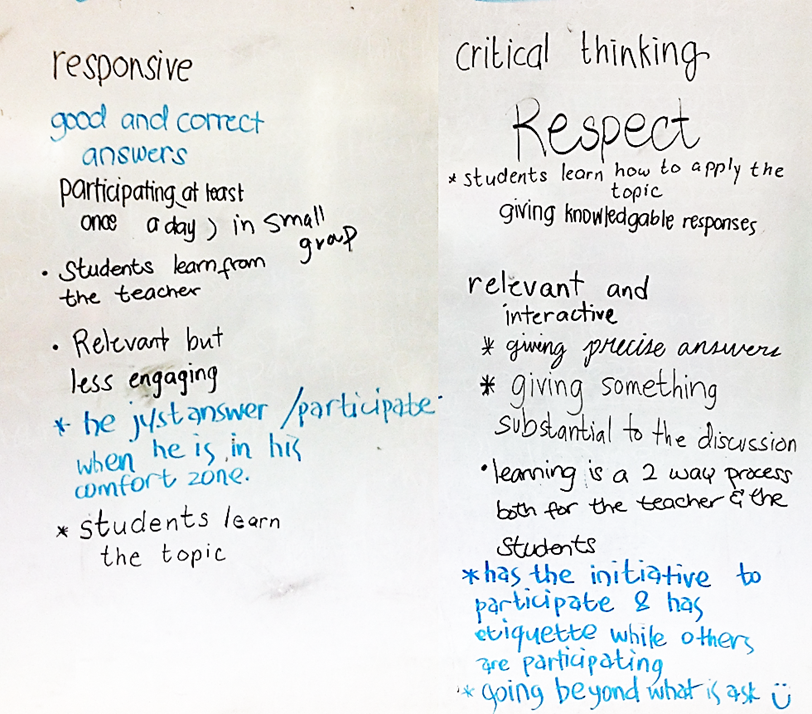 responsive
good and correct
answers
participating at least
once a day, in small
group
• Students learn from
the teacher
• Relevant but
less engaging
* he jyst answer / participate
when he is in his
comfort zone.
* students learn
the topic
critical thinking
Respect
* students learn how to apply the
topic
giving knowledgable responses
relevant and
interactive
* giving precise answers
* giving something
substantial to the discussion
• learning is a 2 way process
both for the teacher & the
students
* has the initiative to
participate & has
etiquette while others
are participating
* going beyond what is ask